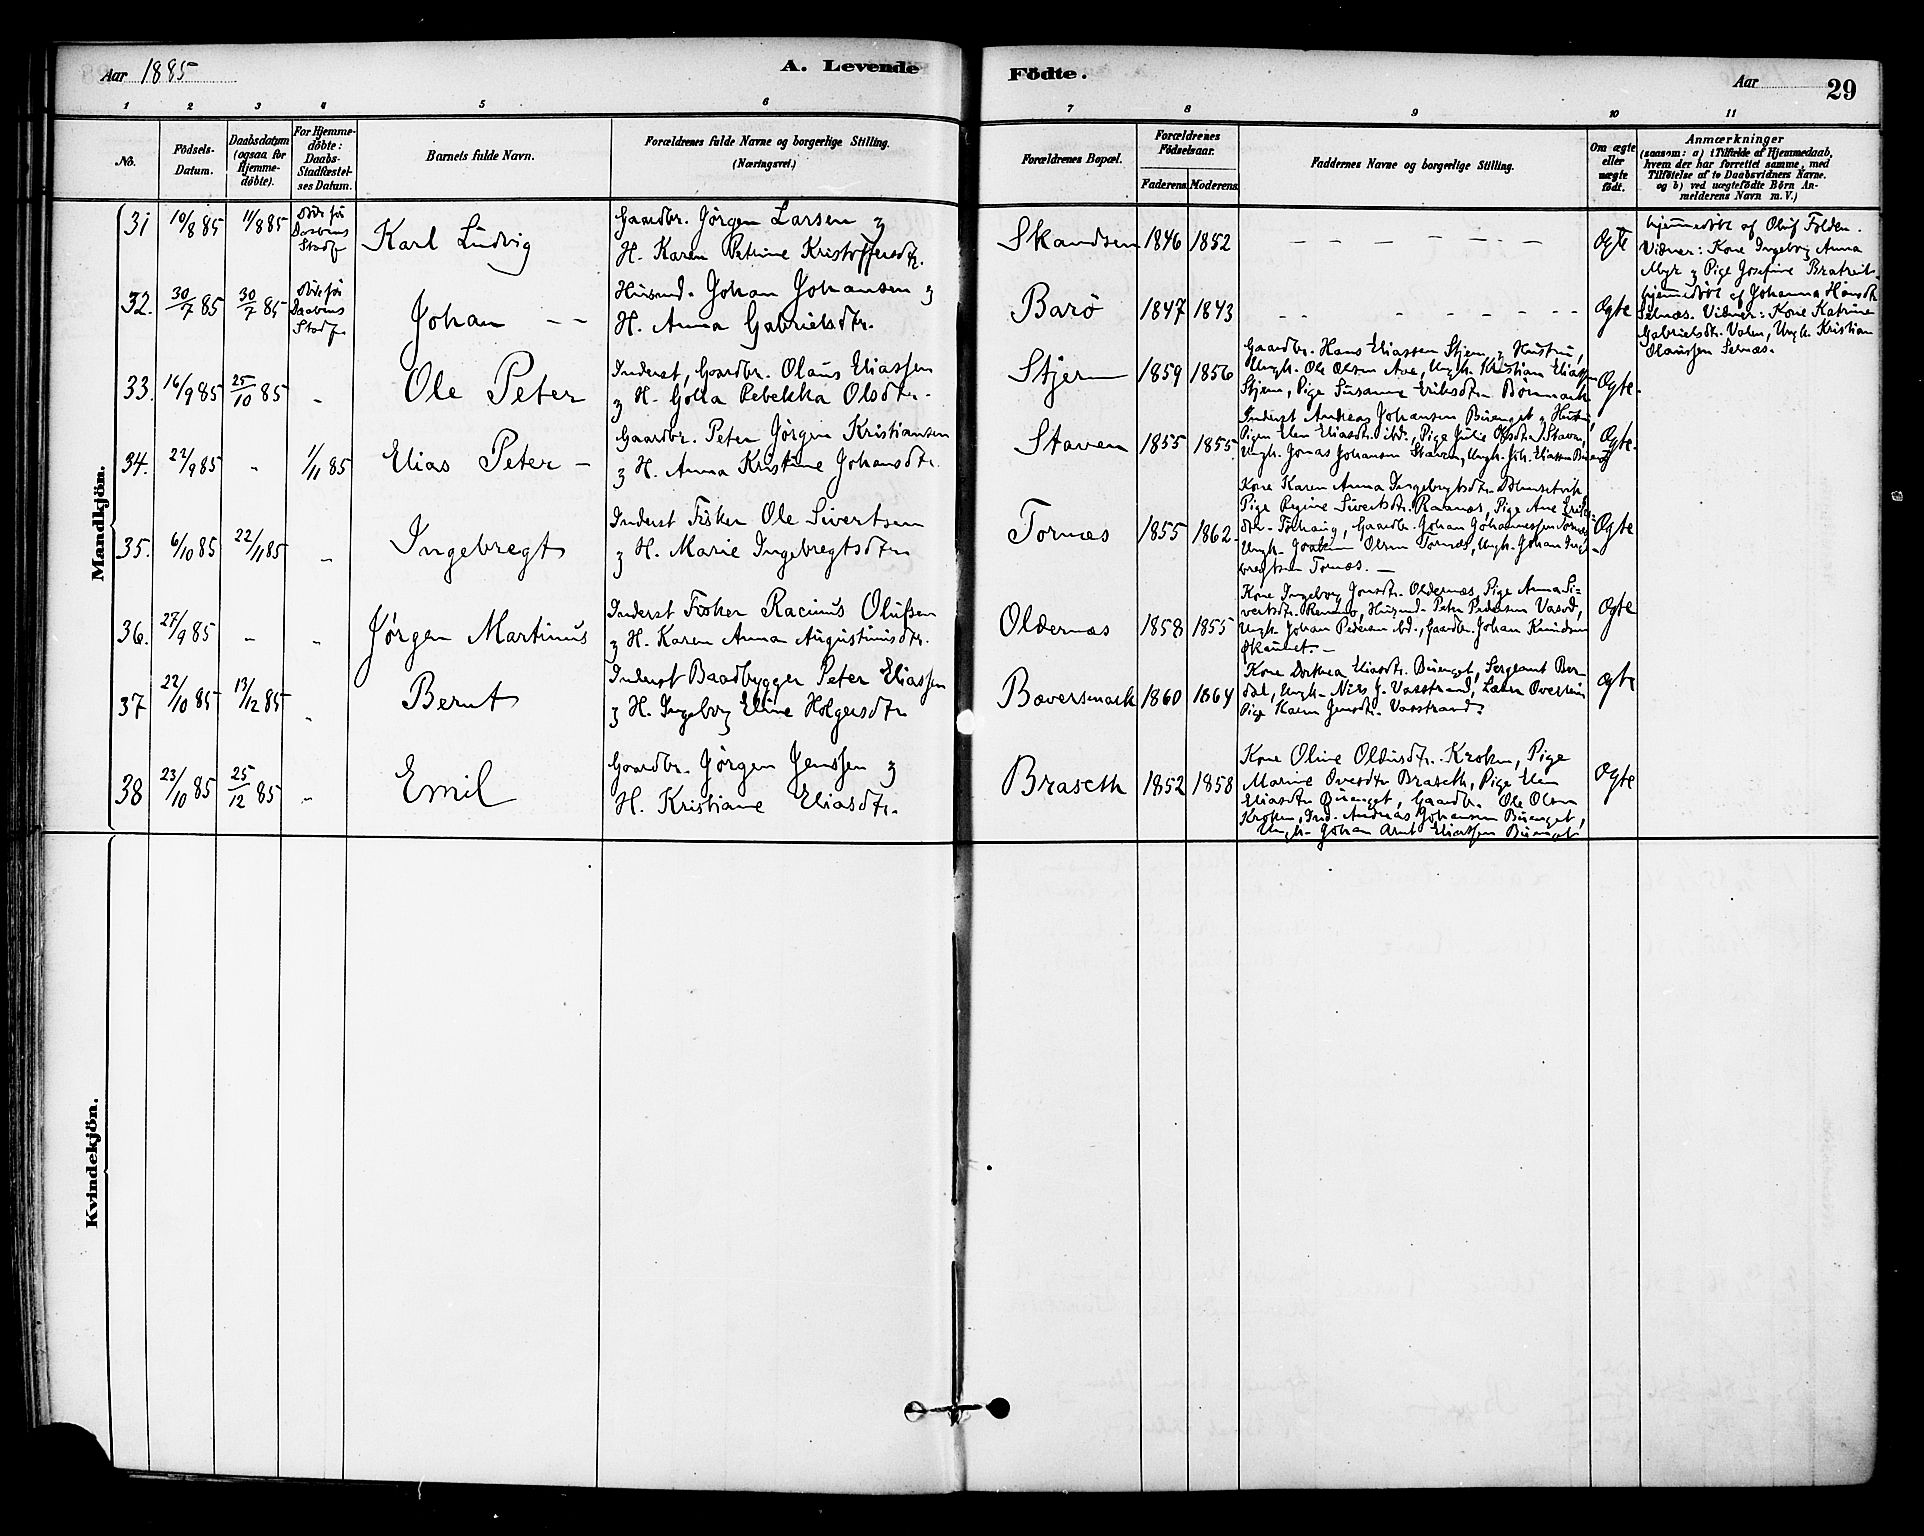 Aar 1885
A. Levende Födte.
Aar
29
1 2 3 4 5 6 7 8 9 10 11
No.
Födsels-Datum.
Daabsdatum (ogsaa for Hjemme-döbte).
For Hjemme-döbte: Daabs-Stadfæstel-ses Datum.
Barnets fulde Navn.
Forældrenes fulde Navne og borgerlige Stilling.
(Næringsvei.)
Forældrenes Bopæl.
Forældrenes Födselsaar.
Faderens. Moderens.
Faddernes Navne og borgerlige Stilling.
Om ægte eller uægte födt.
Anmærkninger
(saasom: a) i Tilfælde af Hjemmedaab,
hvem der har forrettet samme, med
Tilföielse af to Daabsvidners Navne.
og b) ved uægtefödte Börn An-
melderens Navn m. V.)
Mandkjön.
31 10/8 85 11/8 85 döde før Daabens Stadf. Karl Ludvig
Gaardbr. Jørgen Larsen &
H. Karen Petrine Kristoffersdtr.
Skandsen 1846 1852 - - - - - - Ægte
hjemmedöbt af Oluf Folden.
Vidner: Kone Ingeborg Anna
Myr & Pige Josefine Bratreit.
32. 30/7 85 30/7 85 döde før Daabens Stadf. Johan - -
Husmd. Johan Johansen &
H. Anna Gabrielsdtr.
Barö 1847 1843 - - - - - - Ægte
hjemmedöbt af Johanna Hansdtr
Selnæs. Vidner: Kone Katrine
Gabrielsdtr. Valen, Ungk. Kristian
Hanssen Selnæs.
33. 16/9 85 25/10 85 - Ole Peter
Inderst, Gaardbr. Olaus Eliassen
& H. Golla Rebekka Olsdtr.
Stjern 1859 1856
Gaardbr. Hans Eliassen Stjern & Hustru,
Ungk. Ole Olsen Aune, Ungk. Kristian Eliassen
Stjern, Pige Susanne Eriksdtr. Börmark
Ægte.
34. 22/9 85 - 1/11 85 Elias Peter -
Gaardbr. Peter Jörgen Kristiansen
& H. Anna Kristine Johansdtr.
Staven 1855 1855.
Inderst Andreas Johansen Buenget & Hustru,
Pigen Elen Eliasdtr. ibd., Pige Julie Olsdtr. Staven,
Ungk. Jonas Johansen Staven, Ungk. Joh. Eliassen Buenget
Ægte.
35. 6/10 85 22/11 85 - Ingebregt
Inderst Fisker Ole Sivertsen
& H. Marie Ingebregtsdtr.
Tornæs 1855 1862.
Kone Karen Anna Ingebregtsdtr.
Pige Regine Sivertsdtr. Ramnæs, Pige Ane Eriks-
dtr. Gaardbr. Johan Johannessen Tornæs
Ungk. Joakim Olsen Tornæs, Ungk. Johan Inge-
bregtsen Tornæs. -
Ægte
36. 27/9 85 - - Jørgen Martinus
Inderst Fisker Racinus Olufsen
& H. Karen Anna Augustinusdtr.
Oldernæs 1858 1855
Kone Ingeborg Jonsdtr. Oldernæs, Pige Anna Si-
vertsdtr. Husmd. Peter Pedersen
Ungk. Johan Pedersen ibd., Gaardbr. Johan Knudsen
Skaunet. -
Ægte
37 22/10 85 13/12 85 - Bernt
Inderst Baadbygger Peter Eliassen
& H. Ingeborg Eline Holgersdtr.
Bæversmark 1860 1864
Kone Dorthea Eliasdtr. Buenget, Sergeant Ber-
dal, Ungk. Nils J. Vasstrand, Lærer Overrein
Pige Karen Jensdtr. Vasstrand.
Ægte
38 23/10 85 25/12 85 - Emil
Gaardbr. Jørgen Jenssen &
H. Kristiane Eliasdtr.
Braseth 1852 1858
Kone Oline Oldusdtr. Kroken, Pige
Marine Ovesdtr. Braseth, Pige Elen
Eliasdtr. Buenget, Gaardbr. Ole Olsen
Kroken, Ind. Andreas Johansen Buenget,
Ungk. Johan Arnt Eliassen Buenget
Ægte
Kvindekjön.